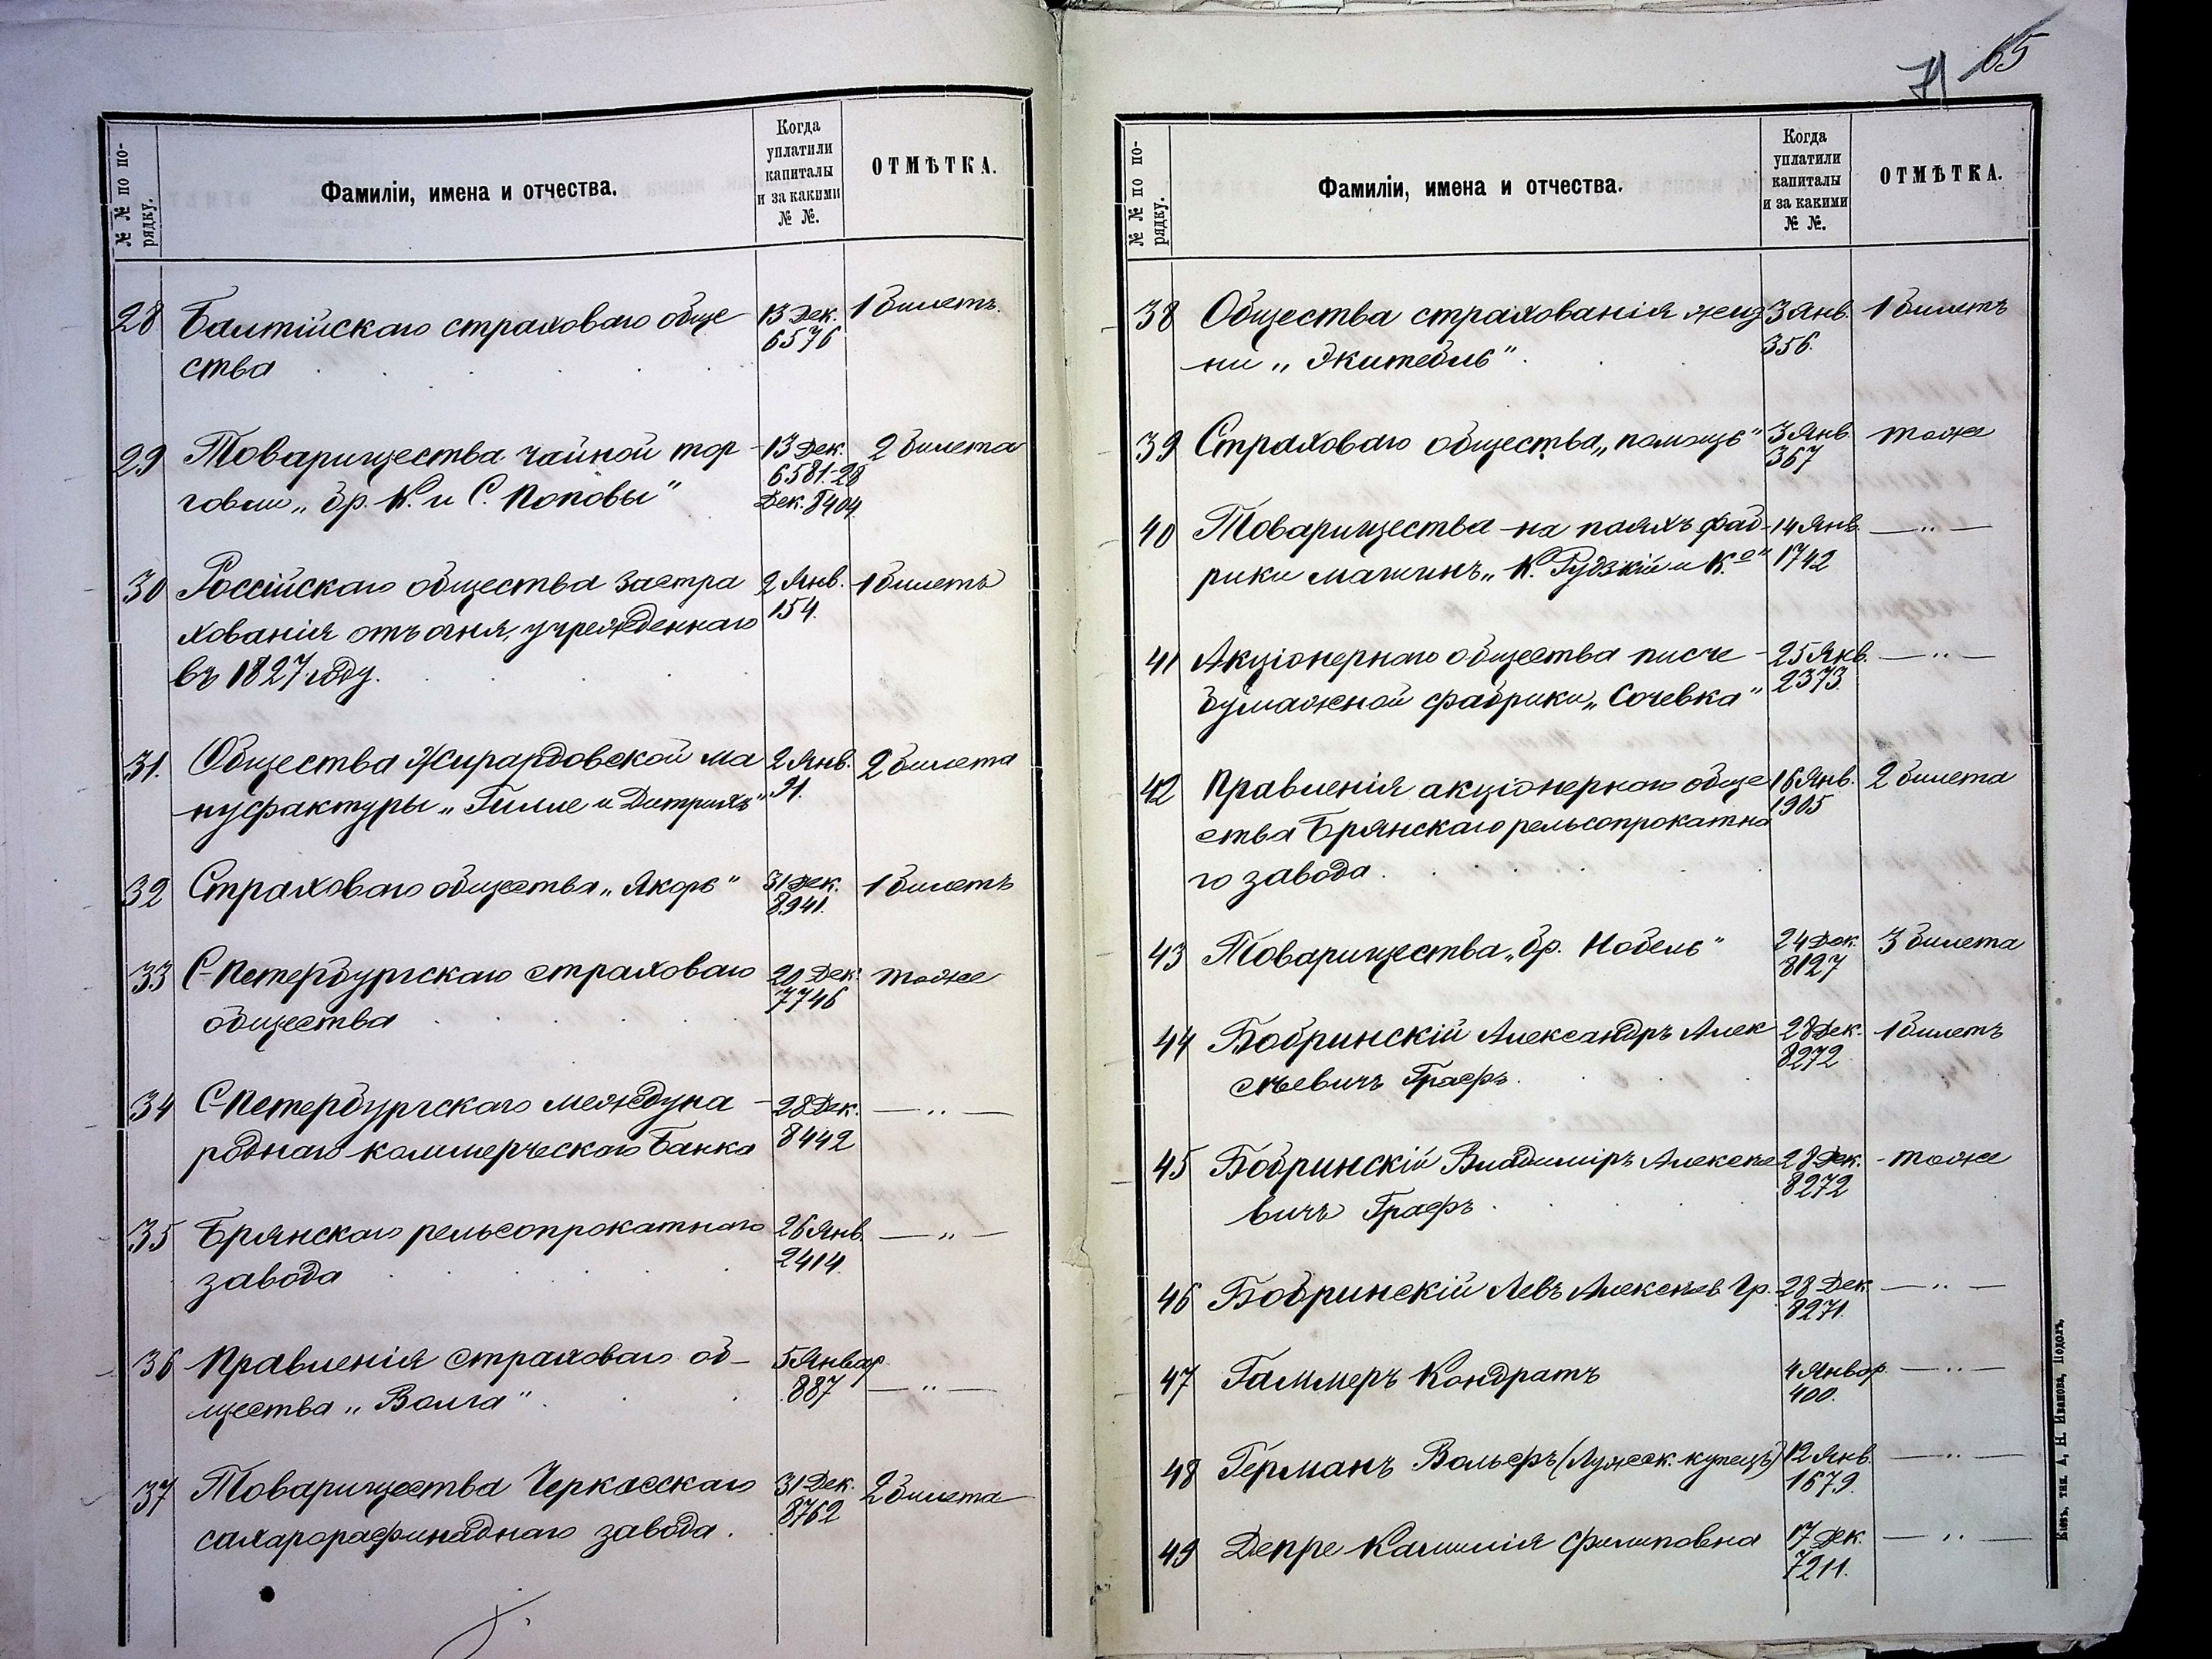 № № по по-
рядку.
Фамиліи, имена и отчества.
Когда
уплатили
капиталы
и за какими
№ №.
ОТМѢТКА.
28 Балтійскаго страховаго обще 13 Дек. 1 билетъ.
ства 6576
29 Товарищества чайной тор- 13 Дек. 2 билета
6581-28
говли „бр. К. и С. Поповы" Дек. 8404.
30 Россійскаго общества застра 2 Янв. 1 билетъ
хованія отъ огня, учрежденнаго 154.
въ 1827 году.
31. Общества Жирардовской ма 2 Янв. 2 билета
нуфактуры „Гилле и Дитрихъ" 91.
32 Страховаго общества „Якорь" 31 Дек. 1 билетъ
8941.
33 С-Петербургскаго страховаго 20 Дек. тоже
общества 7746
34 С-Петербургскаго междуна- 28 Дек. — „ —
роднаго коммерческаго Банка 8442
35 Брянскаго рельсопрокатнаго 26 Янв. — „ —
завода 2414.
36 Правленія страховаго об- 5 Январ.
щества „Волга" 887 — „ —
37 Товарищества Черкасскаго 31 Дек. 2 билета
сахарорафинаднаго завода. 8762
71 65
№ № по по-
рядку.
Фамиліи, имена и отчества.
Когда
уплатили
капиталы
и за какими
№ №.
ОТМѢТКА.
38 Общества страхованія жиз 3 Янв. 1 билетъ
ни „Экитебль" 356.
39 Страховаго общества „помощь" 3 Янв. тоже
367
40 Товарищества на паяхъ фаб- 14 Янв. — „ —
рики машинъ „К. Рудзкій и Ко" 1742
41 Акціонернаго общества писче- 25 Янв. — „ —
бумажной фабрики „Сочевка" 2373.
42 Правленія акціонернаго обще 16 Янв. 2 билета
ства Брянскаго рельсопрокатна 1905
го завода.
43 Товарищества „бр. Нобель" 24 Дек. 3 билета
8127
44 Бобринскій Александръ Алек 28 Дек. 1 билетъ
сѣевичъ Графъ. 8272
45 Бобринскій Владиміръ Алексѣе 28 Дек. тоже
вичъ Графъ 8272
46 Бобринскій Левъ Алексѣев. Гр. 28 Дек. — „ —
8271.
47 Гаммеръ Кондратъ 4 Январ. — „ —
400.
48 Германъ Вольфъ (Лужск. купецъ) 12 Янв. — „ —
1679.
49 Депре Камиллія Филиповна 17 Дек. — „ —
7211.
Кіевъ, тип. А. Н. Иванова, Подолъ.